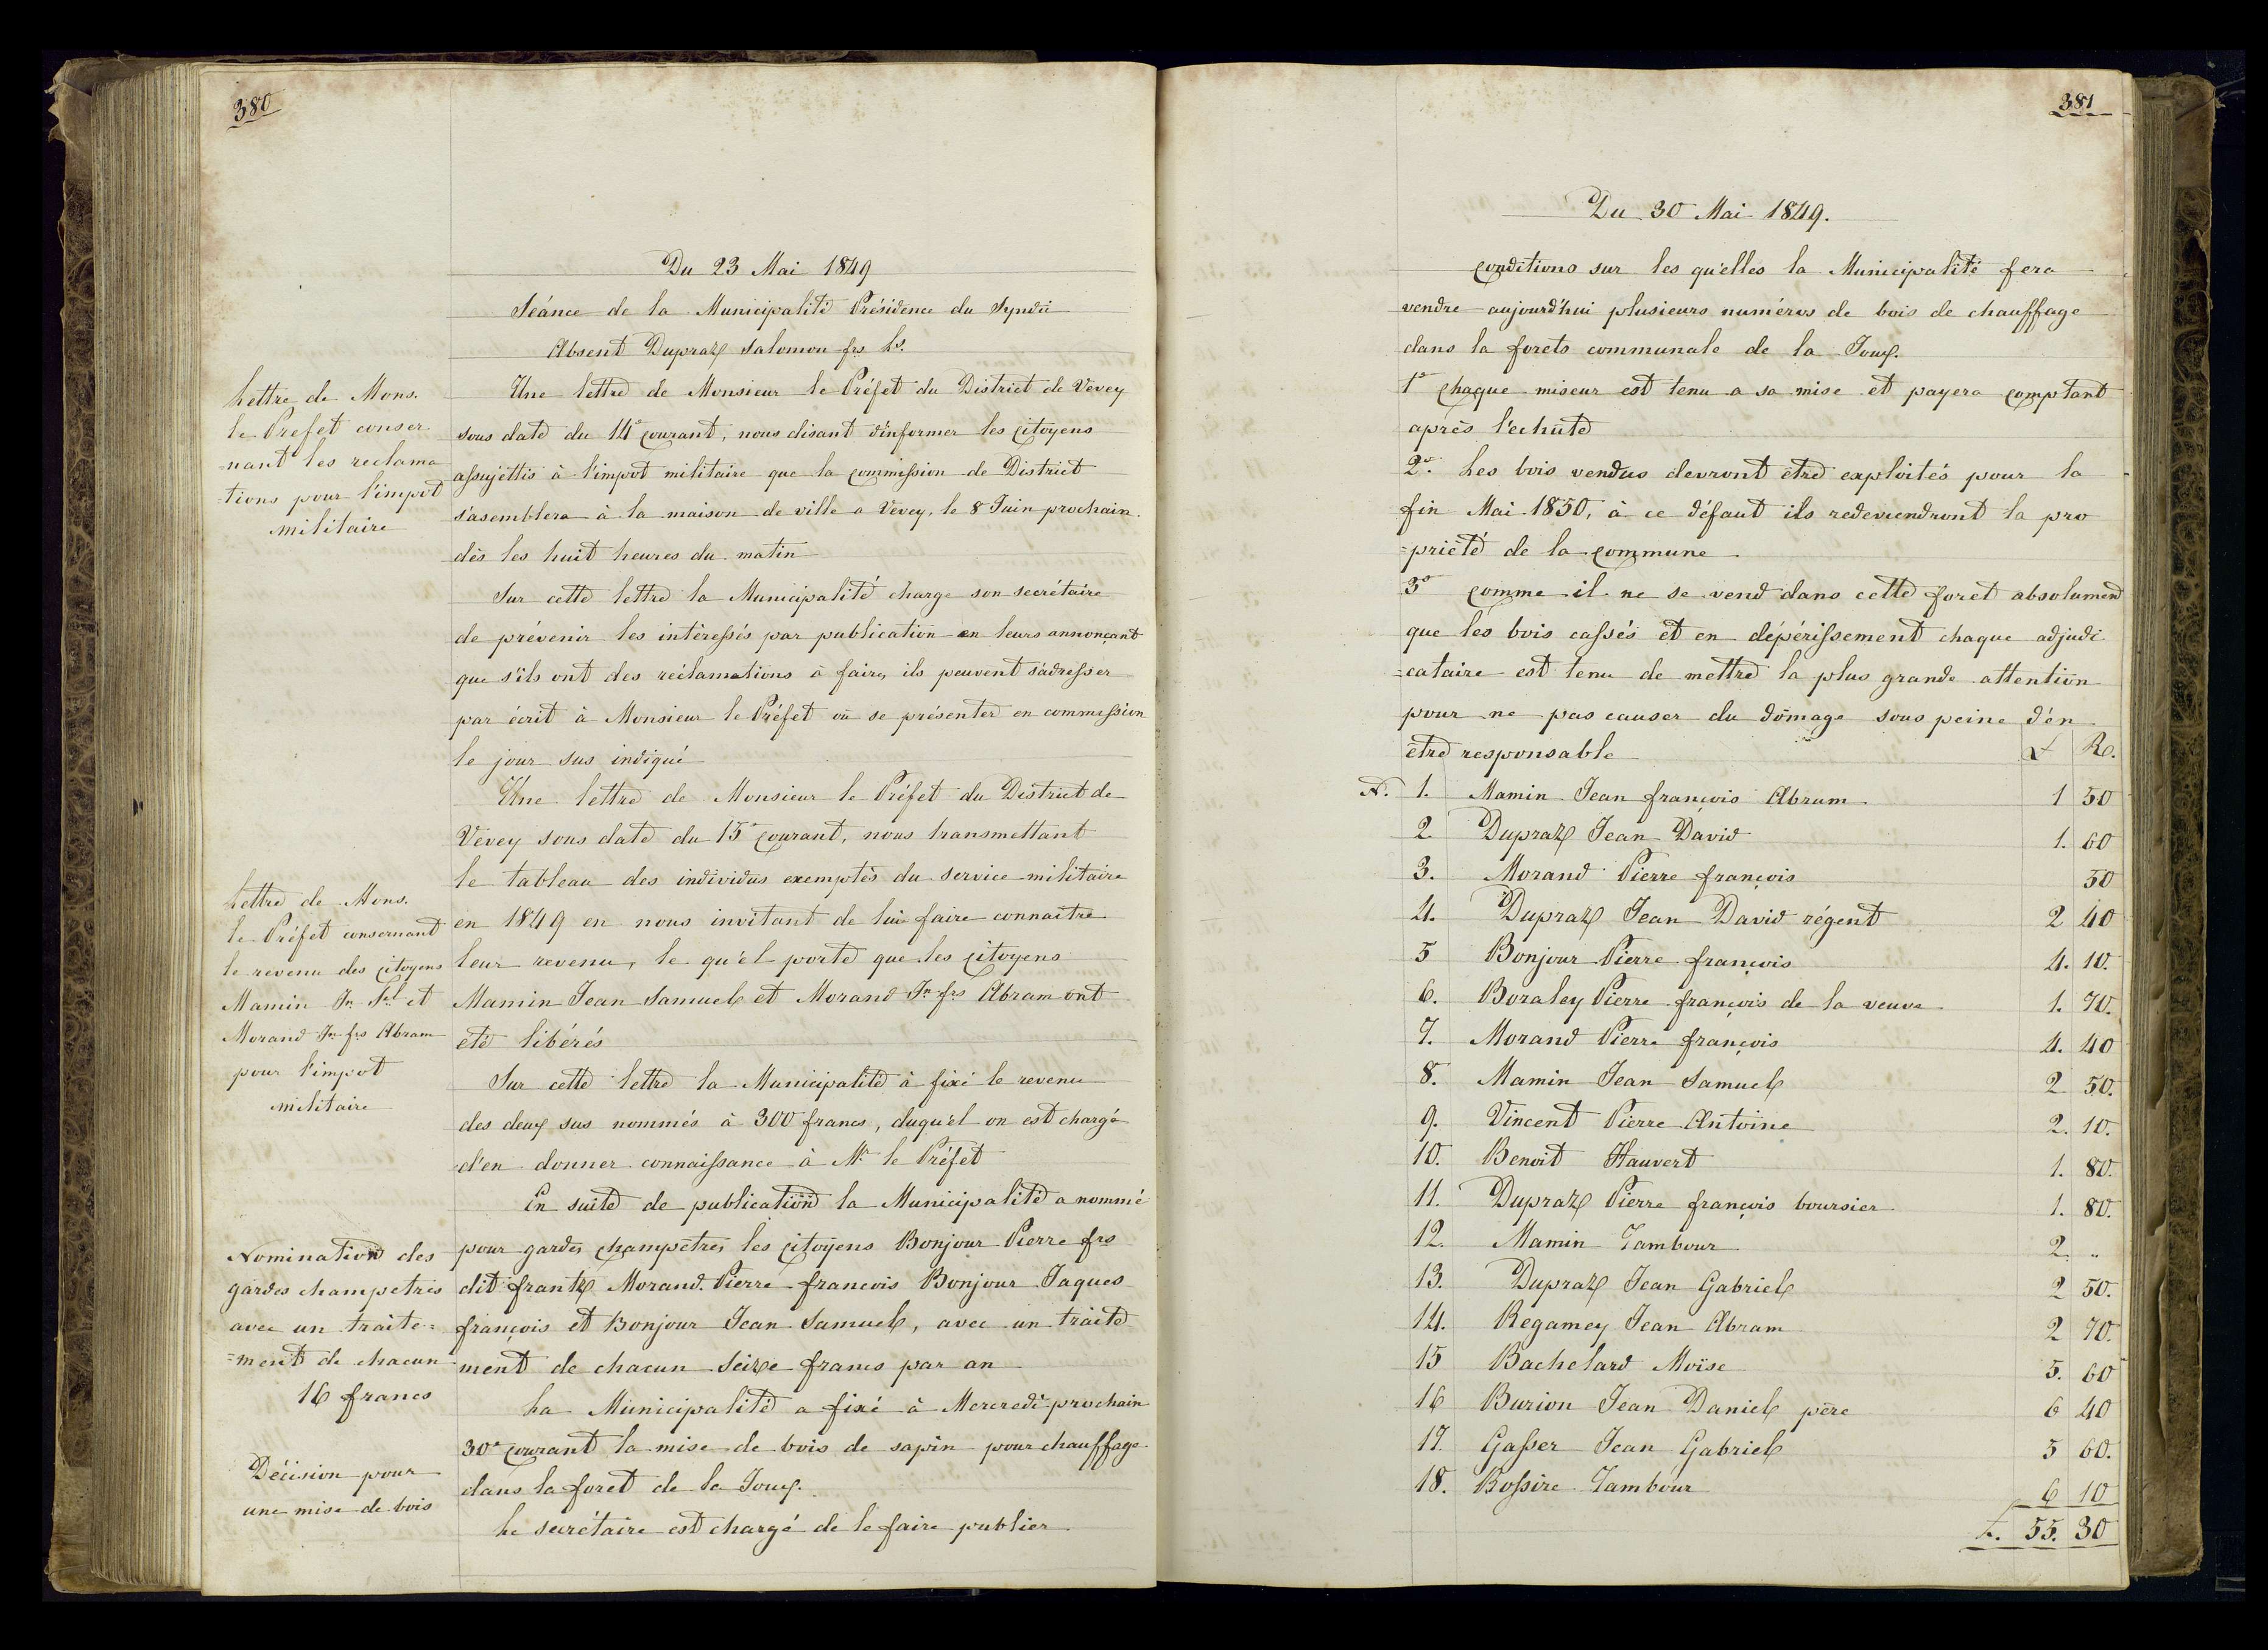 380
Du 23 Mai 1849
Séance de la Municipalité Présidence du Syndic
Absent Dupraz Salomon frs ls.
Lettre de Mons.
le Prefet conser
=nant les reclama
=tions pour l'impot
militaire
Une lettre de Monsieur le Préfet du District de Vevey
sous date du 14e courant, nous disant d'informer les citoyens
assujéttis à l'impot militaire que la commission de District
s'asemblera à la maison de ville a Vevey, le 8 Juin prochain.
dès les huit heures du matin
Sur cette lettre la Municipalité charge son secrétaire
de prévenir les intéressés par publication en leurs annonçant
que s'ils ont des réclamations à faire, ils peuvent s'adresser
par écrit à Monsieur le Préfet ou se présenter en commission
le jour sus indiqué
Lettre de Mons.
le Préfet consernant
le revenu des citoyens
Mamin Jn Sel et
Morand Jn frs Abram
pour l'impot
militaire
Une lettre de Monsieur le Préfet du District de
Vevey sous date du 15e courant, nous transmettant
le tableau des individus exemptés du service militaire
en 1849 en nous invitant de lui faire connaitre
leur revenu, le qu'el porte que les citoyens
Mamin Jean Samuel et Morand Jn frs Abram ont
été libérés
Sur cette lettre la Municipalité à fixé le revenu
des deux sus nommés à 300 francs, duqu'el on est chargé
d'en donner connaissance à Mr le Préfet
Nomination des
gardes champetres
avec un traite=
=ment de chacun
16 francs
En suite de publication la Municipalité a nommé
pour gardes champêtres les citoyens Bonjour Pierre frs
dit frantz Morand Pierre francois Bonjour Jaques
françois et Bonjour Jean Samuel, avec un traite
ment de chacun seize francs par an
Décision pour
une mise de bois
La Municipalité a fixé à Mercredi prochain
30e courant la mise de bois de sapin pour chauffage
dans la foret de la Joux.
Le secrétaire est chargé de le faire publier
381
Du 30 Mai 1849.
conditions sur les qu'elles la Municipalité fera
vendre aujourd'hui plusieurs numéros de bois de chauffage
dans la forets communale de la Joux.
1o chaque miseur est tenu a sa mise et payera comptant
après l'echûte
2o. Les bois vendus devront être exploités pour la
fin Mai 1850, à ce défaut ils redeviendront la pro
=priété de la commune
3o comme il ne se vend dans cette foret absolument
que les bois cassés et en dépérissement chaque adjudi
=cataire est tenu de mettre la plus grande attention
pour ne pas causer du dômage sous peine d'én
être responsable f Rp.
N. 1. Mamin Jean françois Abram 1 50
2. Dupraz Jean David 1. 60
3. Morand Pierre françois 50
4. Dupraz Jean David régent 2 40
5 Bonjour Pierre françois 4. 10.
6. Boraley Pierre françois de la veuve 1. 70.
7. Morand Pierre françois 4. 40
8. Mamin Jean Samuel 2 50.
9. Vincent Pierre Antoine 2. 10.
10. Benoit Hauvert 1. 80.
11. Dupraz Pierre françois boursier 1. 80.
12. Mamin Tambour 2. "
13. Dupraz Jean Gabriel 2 50.
14. Regamey Jean Abram 2 70.
15 Bachelard Moïse 5. 60
16 Burion Jean Daniel père 6 40
17. Gasser Jean Gabriel 5 60.
18. Bossire Tambour 6 10
f. 55. 30